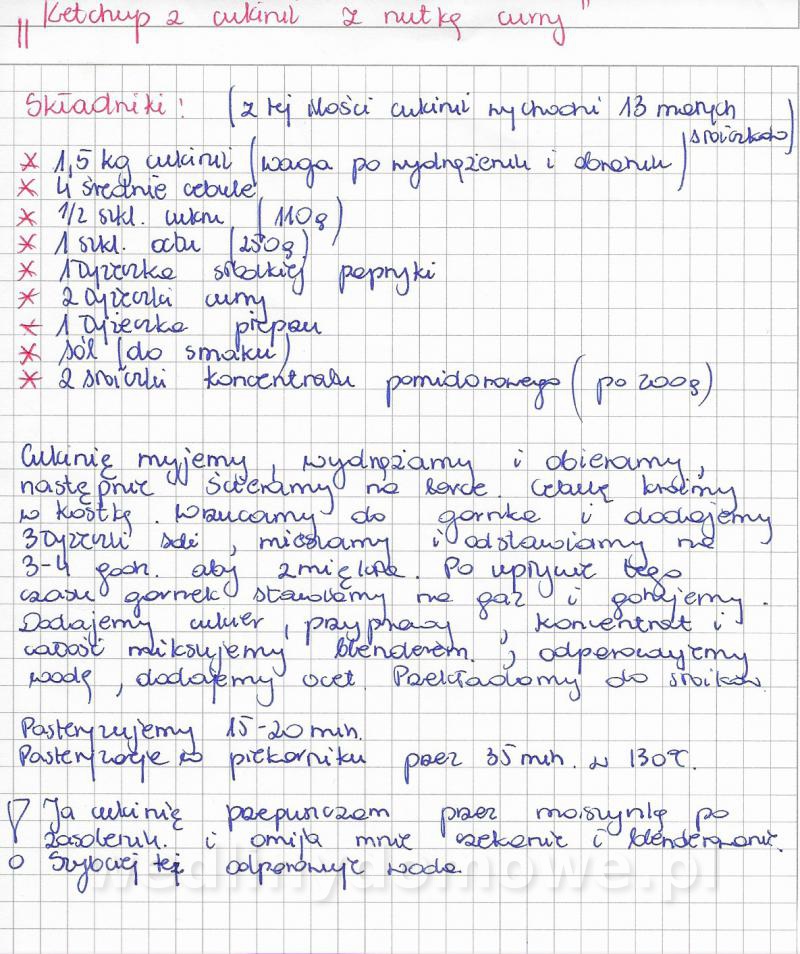 "Ketchup z cukinii z nutką curry"
Składniki: (z tej ilości cukinii wychodzi 13 małych
słoiczków)
* 1,5 kg cukinii (waga po wydrążeniu i obraniu)
* 4 średnie cebule
* 1/2 szkl. cukru (110g)
* 1 szkl. octu (250g)
* 1 łyżeczka słodkiej papryki
* 2 łyżeczki curry
* 1 łyżeczka pieprzu
* sól (do smaku)
* 2 słoiczki koncentratu pomidorowego (po 200g)
Cukinię myjemy, wydrążamy i obieramy,
następnie ścieramy na tarce. Cebulę kroimy
w kostkę. Wrzucamy do garnka i dodajemy
3 łyżeczki soli, mieszamy i odstawiamy na
3-4 godz. aby zmiękła. Po upływie tego
czasu garnek stawiamy na gaz i gotujemy.
Dodajemy cukier, przyprawy, koncentrat i
całość miksujemy blenderem, odparowujemy
wodę, dodajemy ocet. Przekładamy do słoików.
Pasteryzujemy 15-20 min.
Pasteryzacja w piekarniku przez 35 min. w 130°C.
! Ja cukinię przepuszczam przez maszynkę po
zasoleniu. i omija mnie czekanie i blenderowanie.
Szybciej też odparowuje woda.
wedlinydomowe.pl